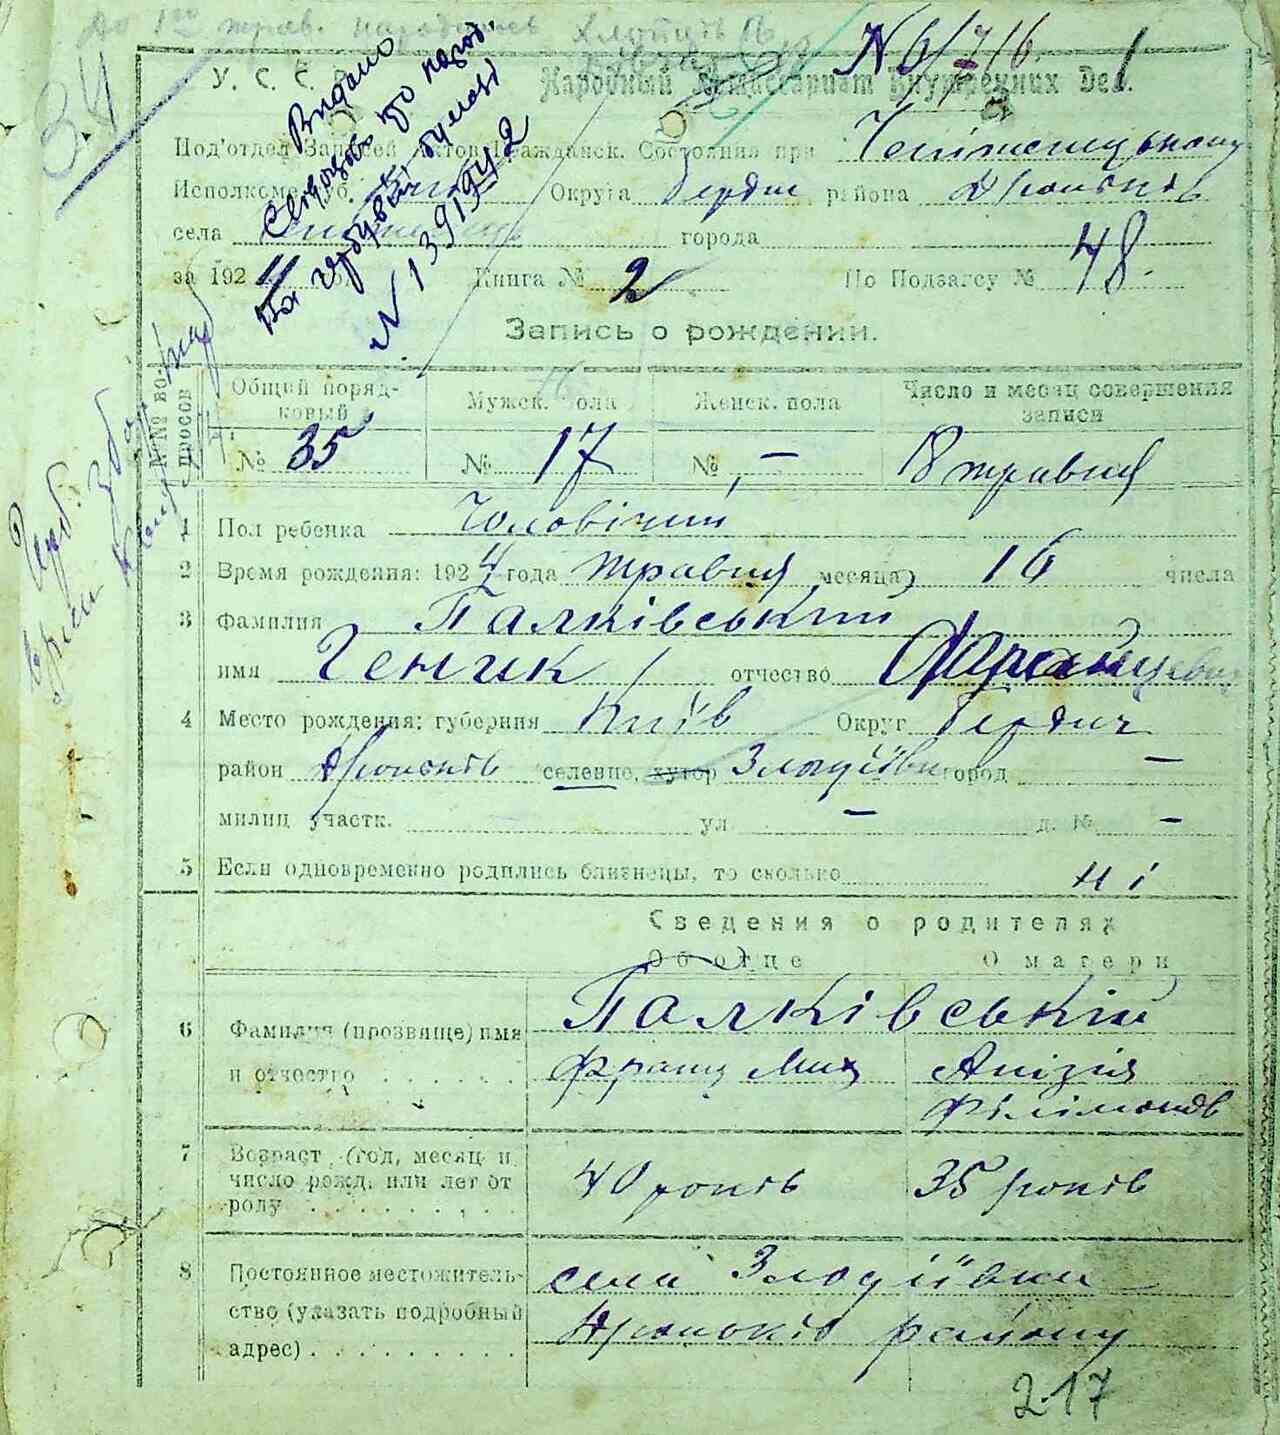 до 1го трав. народилось хлопців 16
34
N 6/716. 1
У. С. С. Р.
Народный Комиссариат Внутренних Дел.
Видано
по народ.
на гербувій бумазі
N 139159
Под'отдел Записей Актов Гражданск. Состояния при
Исполкоме, Губ. Київ Округа Бердич района
села города
за 1924 год Книга № 2 По Подзагсу № 48.
Запись о рождении.
№№ вопросов
Общий порядковый Мужск. пола Женск. пола Число и месяц совершения записи
№ 35 № 17 № - 18 травня
1 Пол ребенка Чоловічий
2 Время рождения: 1924 года травня месяца 16 числа
3 Фамилия Палківський
имя Геник отчество Францевич
4 Место рождения: губерния Київ Округ Бердич
район селение, хутор Злодіївка город -
милиц участк. ул. - д. № -
5 Если одновременно родились близнецы, то сколько ні
Сведения о родителях
Об отце О матери
6 Фамилия (прозвище) имя Палківській
и отчество Франц Мих Анізія
Філімонов
7 Возраст (год, месяц и
число рожд. или лет от 40 років 35 років
роду
8 Постоянное местожитель- села Злодіївки
ство (указать подробный району
адрес)
217